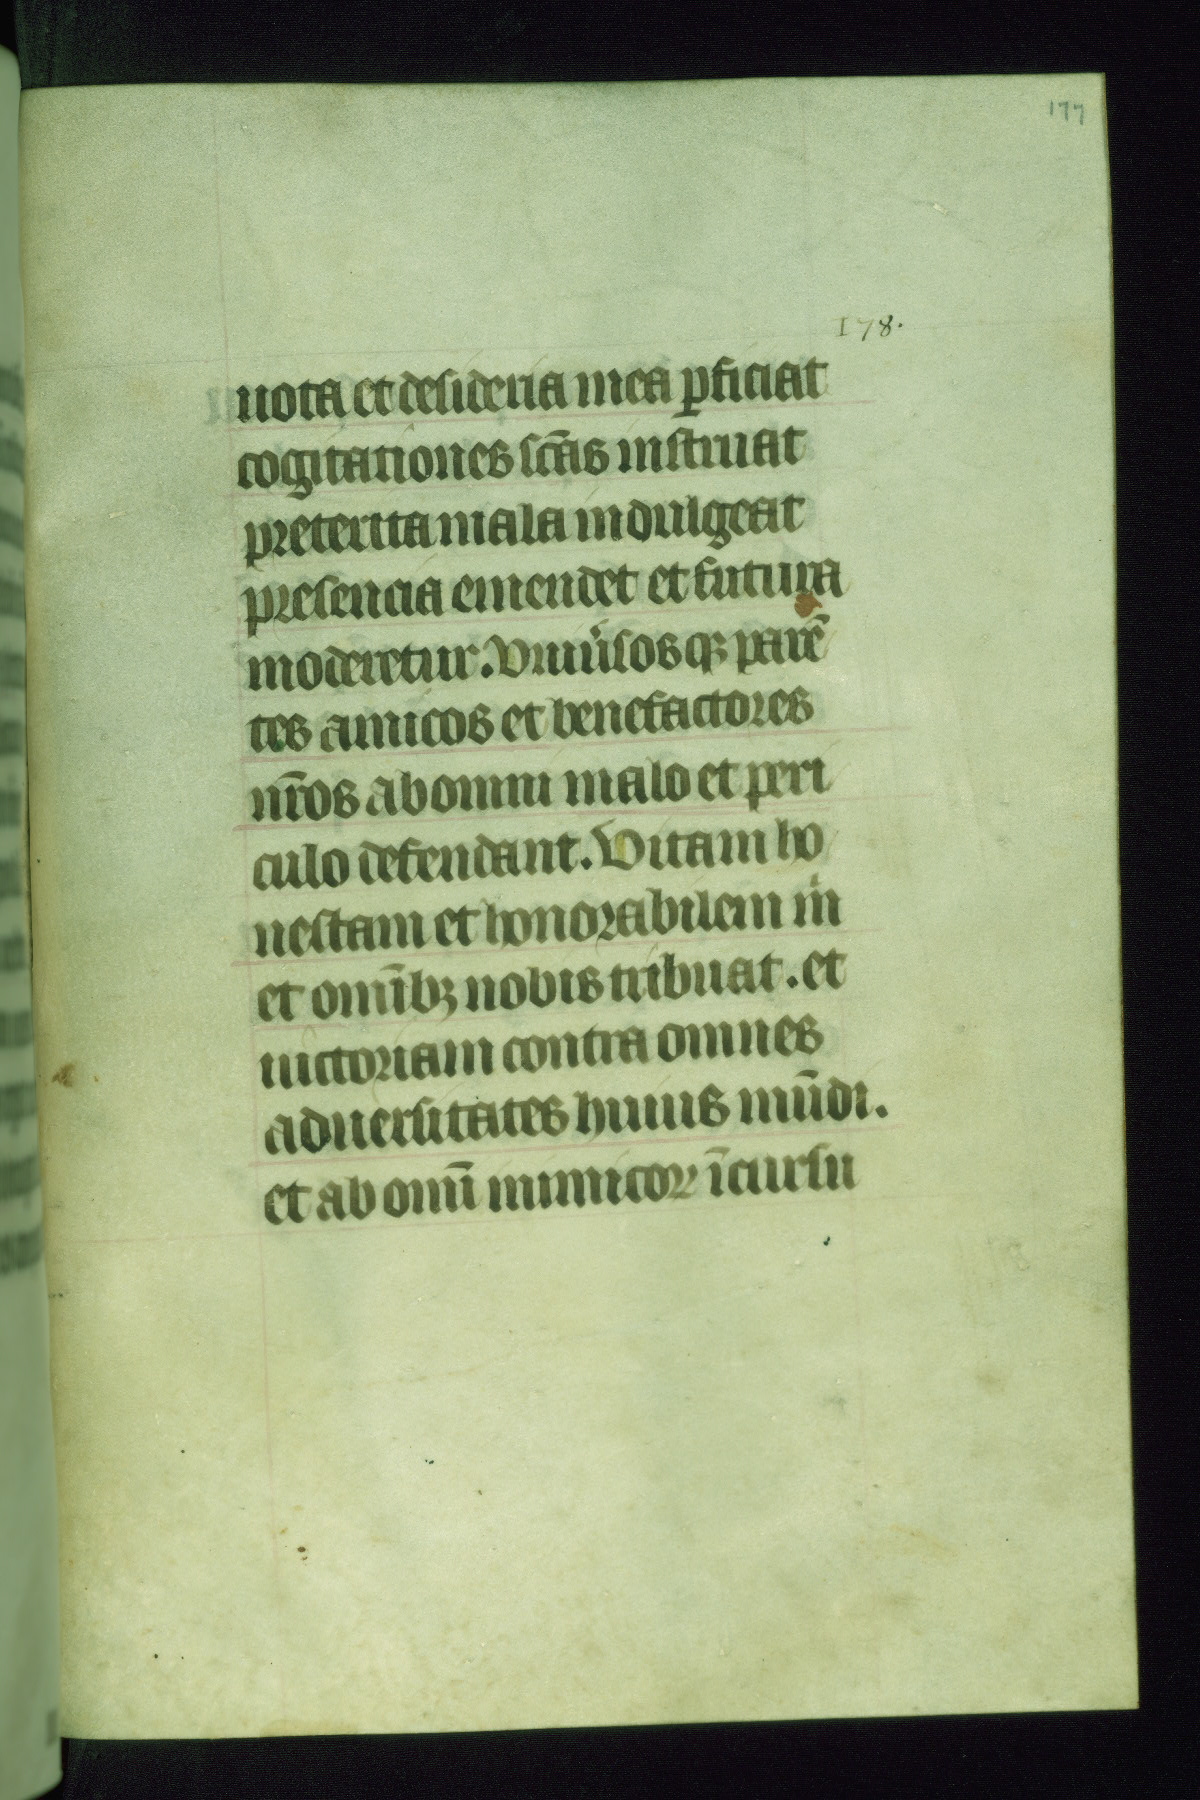 177
178.
uota et desideria mea ꝑficiat
cogitationes sc̄as instruat
preterita mala indulgeat
presencia emendet et futura
moderetur. Vniu̓sosqꝫ parē
tes amicos et benefactores
nr̄os ab omni malo et peri
culo defendant. Vitam ho
nestam et honorabilem m̓
et omīb₃ nobis tribuat. et
uictoriam contra omnes
aduersitates huius mūdi.
et ab omī inimicoꝝ īcursu